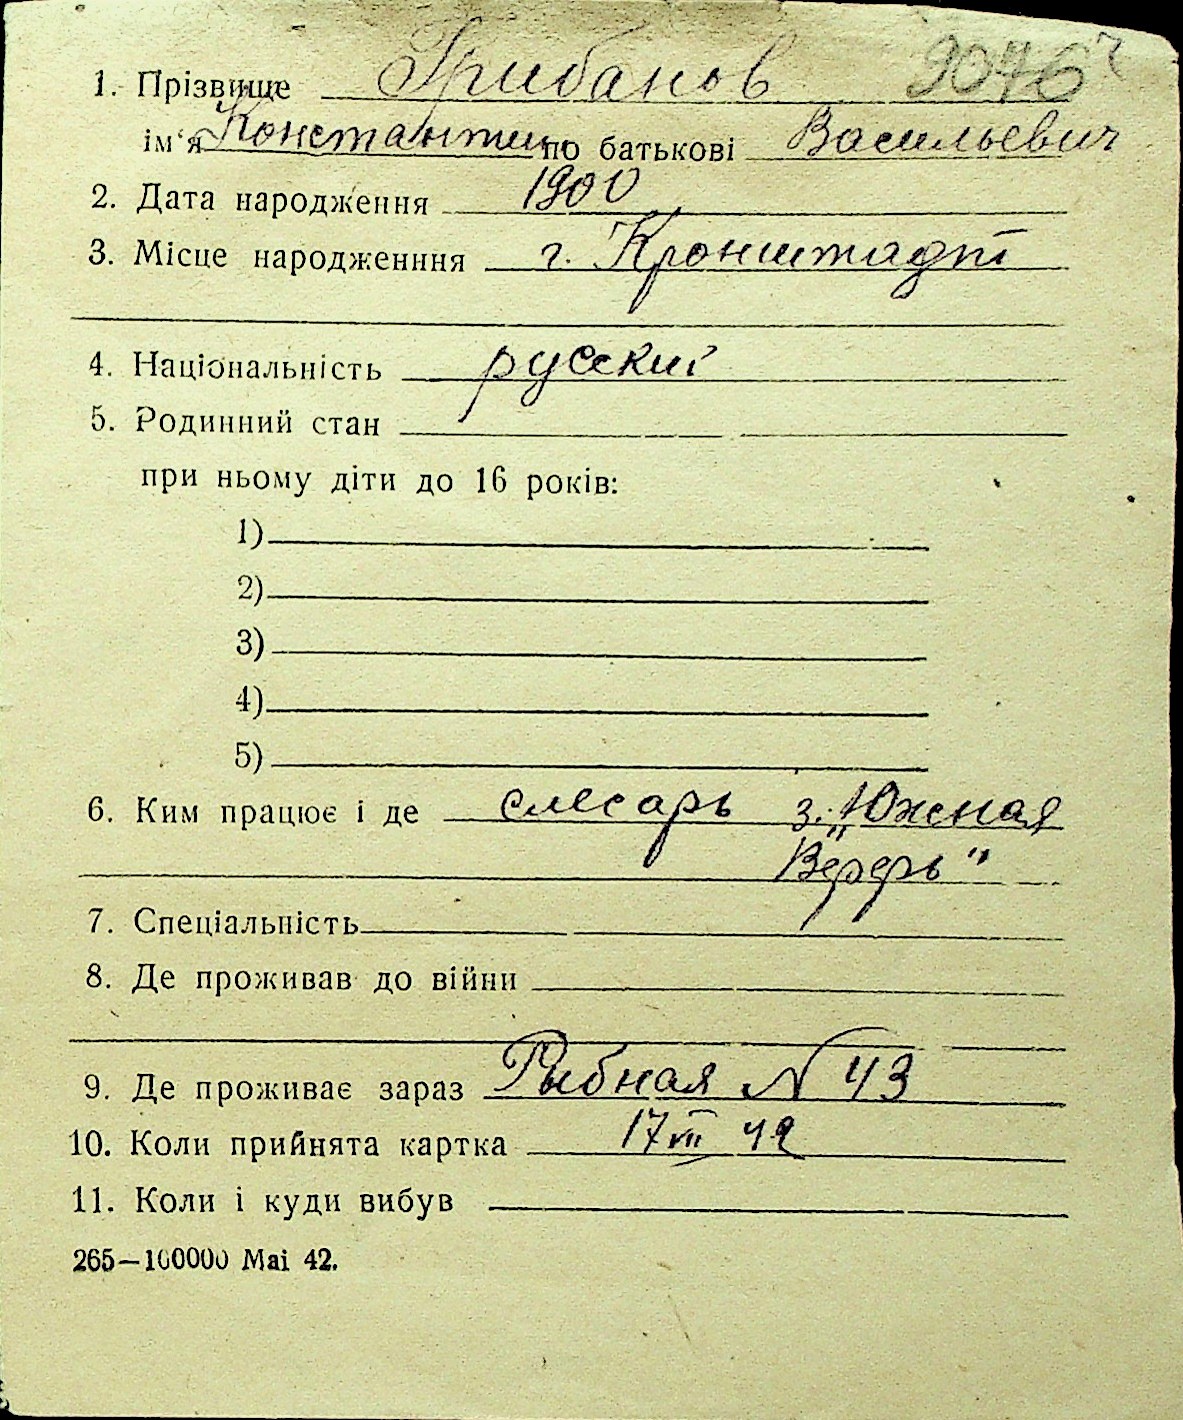 1. Прізвище Грибанов 9046
ім'я Константин по батькові Васильевич
2. Дата народження 1900
3. Місце народженння г. Кронштадт
4. Національність русский
5. Родинний стан
при ньому діти до 16 років:
1)
2)
3)
4)
5)
6. Ким працює і де слесарь з. „Южная
Верфь"
7. Спеціальність
8. Де проживав до війни
9. Де проживає зараз Рыбная N 43
10. Коли прийнята картка 17 VII 42
11. Коли і куди вибув
265—100000 Mai 42.